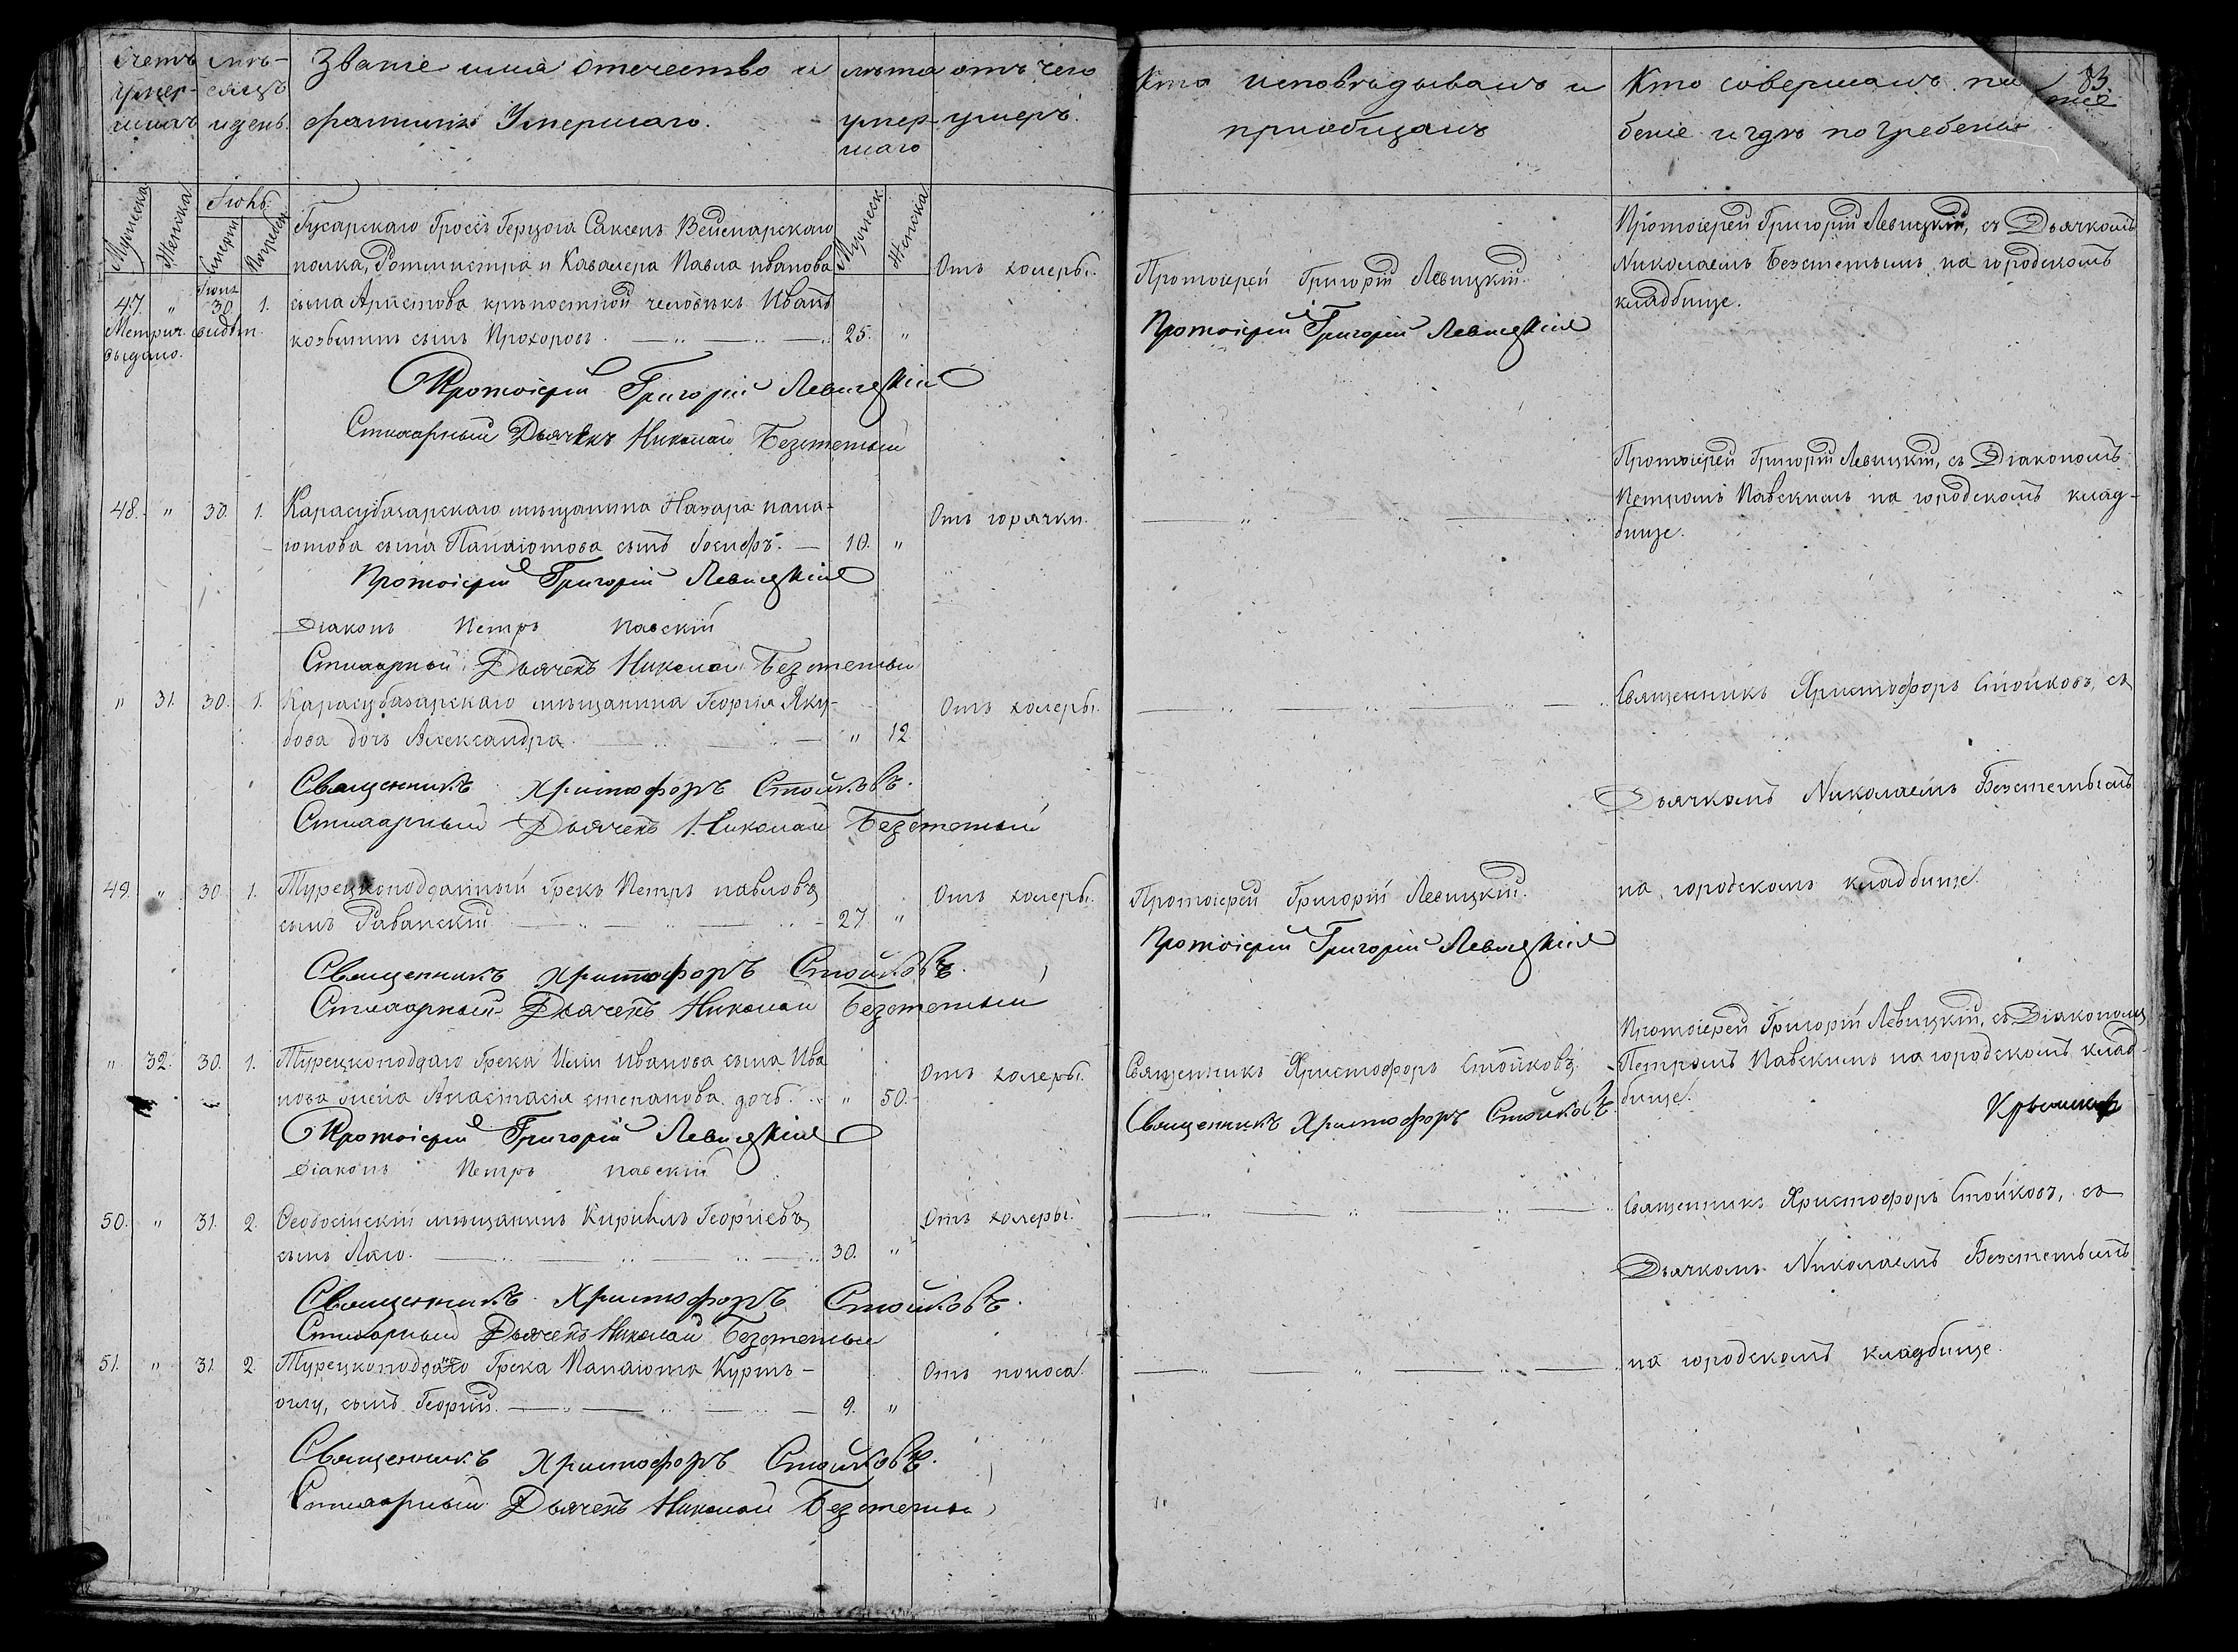 Счетъ умер- шихъ
мѣ- сяцъ и день.
Званіе имя отечество и
фамилія Умершаго.
лѣта умер- шаго
отъ чего умеръ.
Кто исповѣдывалъ и
пріобщалъ
Кто совершалъ
беніе и гдѣ погребены
83
Мужеска Женска
Смерти Погребен
Мужеск. Женска
Гусарскаго Гроссъ Герцога Саксенъ Веймарскаго
полка, Ротмистра и Кавалера Павла иванова
47. " 30. 1. сына Аристова крѣпостной человѣкъ Иванъ
козьминъ сынъ Прохоровъ. 25. "
Отъ холеры.
Метрич. свидѣт.
выдано.
Протоіерей Григорій Левицкій.
Протоіерей Григорій Левицкій
Протоіерей Григорій Левицкій, съ Дьячкомъ
Николаемъ Безсметнымъ на городскомъ
кладбище.
Протоіерей Григорій Левицкій
Стихарный Дьячекъ Николай
48. " 30. 1. Карасубазарскаго мѣщанина Назара пана-
ютова сына Панаютова сынъ Іосифъ. 10. "
Отъ горячки.
Протоіерей Григорій Левицкій, съ Діакономъ
Петромъ Павскимъ на городскомъ клад-
бище.
Протоіерей Григорій Левицкій
Діаконъ Петръ Павскій
Стихарный Дьячекъ Николай
" 31. 30. 1. Карасубазарскаго мѣщанина Георгія Яку-
бова дочь Александра. " 12
Отъ холеры.
Священникъ Христофоръ Стойковъ, съ
Священникъ Христофоръ Стойковъ.
Стихарный Дьячекъ Николай
Дьячкомъ Николаемъ
49. " 30. 1. Турецкоподданный Грекъ Петръ павловъ
сынъ 27 "
Отъ холеры.
Протоіерей Григорій Левицкій.
Протоіерей Григорій Левицкій
на городскомъ кладбище.
Священникъ Христофоръ Стойковъ.
Стихарный Дьячекъ Николай
" 32. 30. 1. Турецкоподдаго Грека Ильи Иванова сына Ива
нова жена Анастасія степанова дочь. " 50.
Отъ холеры.
Священникъ Христофоръ Стойковъ.
Священникъ Христофоръ Стойковъ.
Протоіерей Григорій Левицкій, съ Діакономъ
Петромъ Павскимъ на городскомъ клад-
бище.
Протоіерей Григорій Левицкій
Діаконъ Петръ павскій
50. " 31. 2. Феодосійскій мѣщанинъ Кирилъ Георгіевъ
сынъ 30. "
Отъ холеры.
Священникъ Христофоръ Стойковъ, съ
Дьячкомъ Николаемъ
Священникъ Христофоръ Стойковъ.
Стихарный Дьячекъ Николай
51. " 31. 2. Турецкоподдаго Грека Панаюта Куртъ-
оглу, сынъ Георгій. 9. "
Отъ поноса.
на городскомъ кладбище.
Священникъ Христофоръ Стойковъ.
Стихарный Дьячекъ Николай